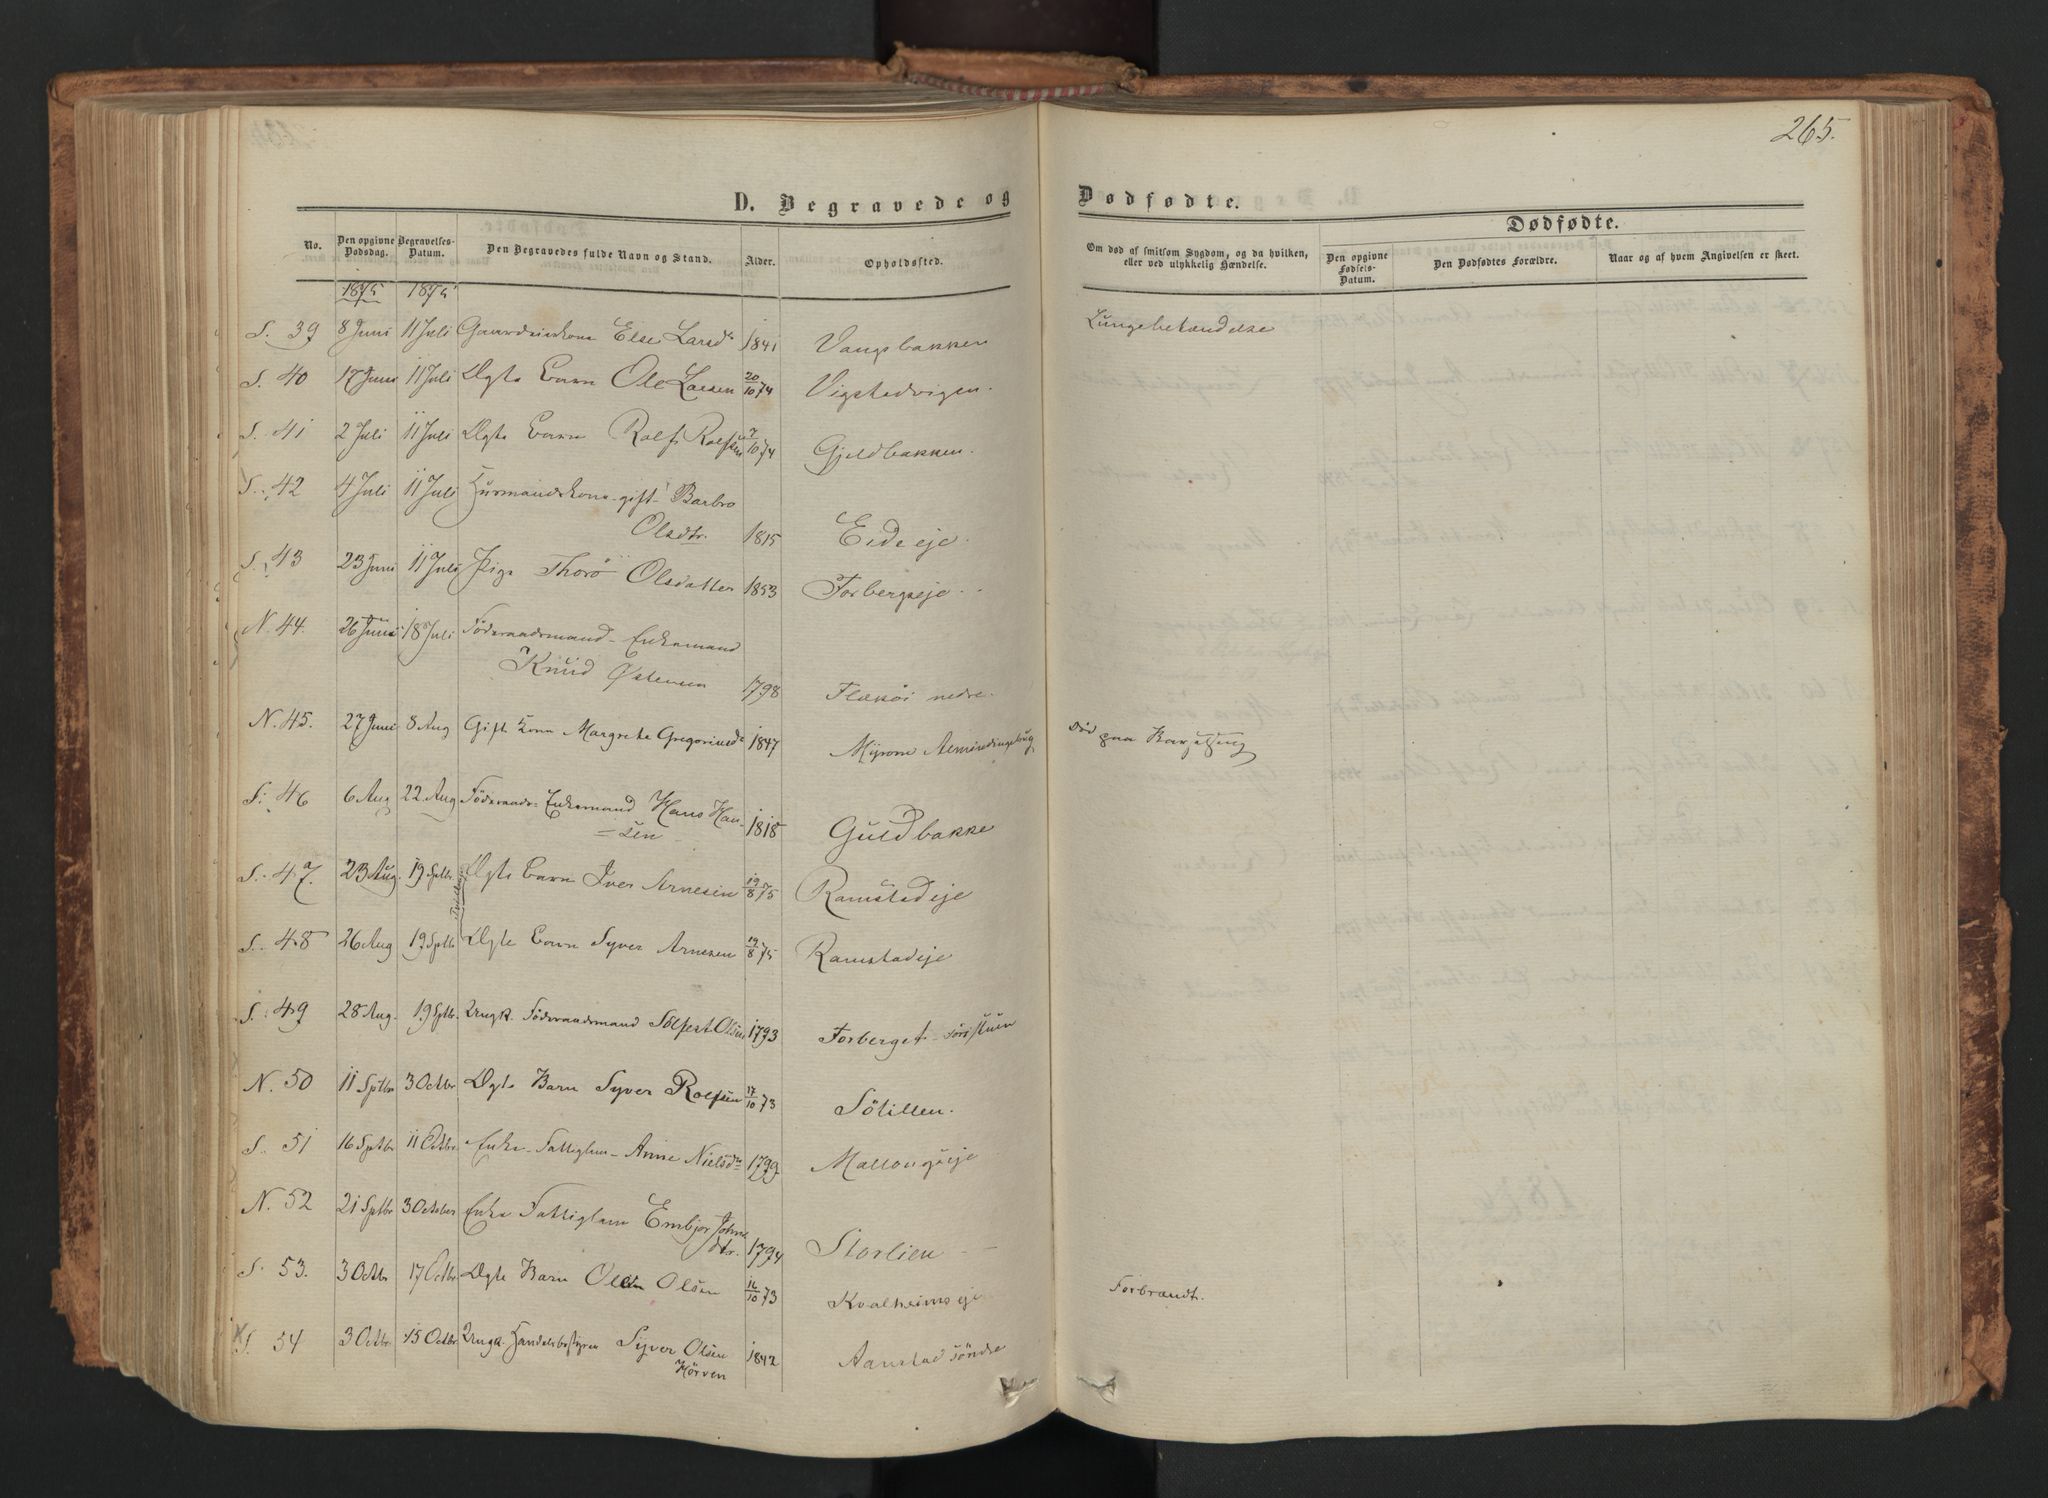 265.
D. Begravede og Dødfødte.
Dødfødte.
No. Den opgivne Dødsdag. Begravelses-Datum. Den Begravedes fulde Navn og Stand. Alder. Opholdssted. Om død af smitsom Sygdom, og da hvilken, eller ved ulykkelig Hændelse. Den opgivne Fødsels-Datum. Den Dødfødtes Forældre. Naar og af hvem Angivelsen er skeet.
1875 1875
S. 39 8 Juni 11 Juli Gaardmandskone Else Larsd. 1841 Vangsbakken Lungebetændelse
S. 40 17 Juni 11 Juli Ægte Barn Ole Larsen 20/10 74 Vigstadvigen.
S. 41 2 Juli 11 Juli Ægte Barn Rolf Rolfsen 7/10 74 Gjeldbakken.
S. 42 4 Juli 11 Juli Husmandskone gift Barbro
Olsdtr. 1815 Eide eje.
S. 43 23 Juni 11 Juli Pige Thorö Olsdatter 1853 Forbergseje
N. 44. 26 Juni 18 Juli Föderaadsmand - Enkemand
Knud Østensen 1798 Flækøi nedre.
N. 45. 27 Juni 8 Aug Gift Kone Margrete Gregoriusd. 1847 Myrom død paa Barselseng
S. 46 6 Aug 22 Aug Föderaads- Enkemand Hans Han-
=sen 1818 Guldbakke
S. 47. 23 Aug. 19 Sptbr. Ægte Barn Iver Arnesen 19/8 75 Ramstadeje
Tvillinger
S. 48 26 Aug 19 Sptbr. Ægte Barn Syver Arnesen 19/8 75 Ramstadeje
S. 49 28 Aug. 19 Sptbr. Ungk. Föderaadsmand Sølfest Olsen 1793 Forberget
N. 50 11 Sptbr 3 Octbr Ægte Barn Syver Rolfsen 17/10 73 Sötilleen.
S. 51 16 Sptbr 11 Octbr Enke - Fattiglem - Anne Nielsd. 1799 Mallongseje
N. 52 21 Sptbr 3 October Enke Fattiglem Embjør Johns
dtr. 1794 Storlien
S. 53. 3 Octbr 17 Octbr Ægte Barn Ole Olsen 16/10 73 Kvalheimseje Forbrændt.
X S. 54 3 Octbr. 15 Octbr. Ungk. Handelsbestyrer Syver Olsen 1842 Aanstad söndre
Hörven